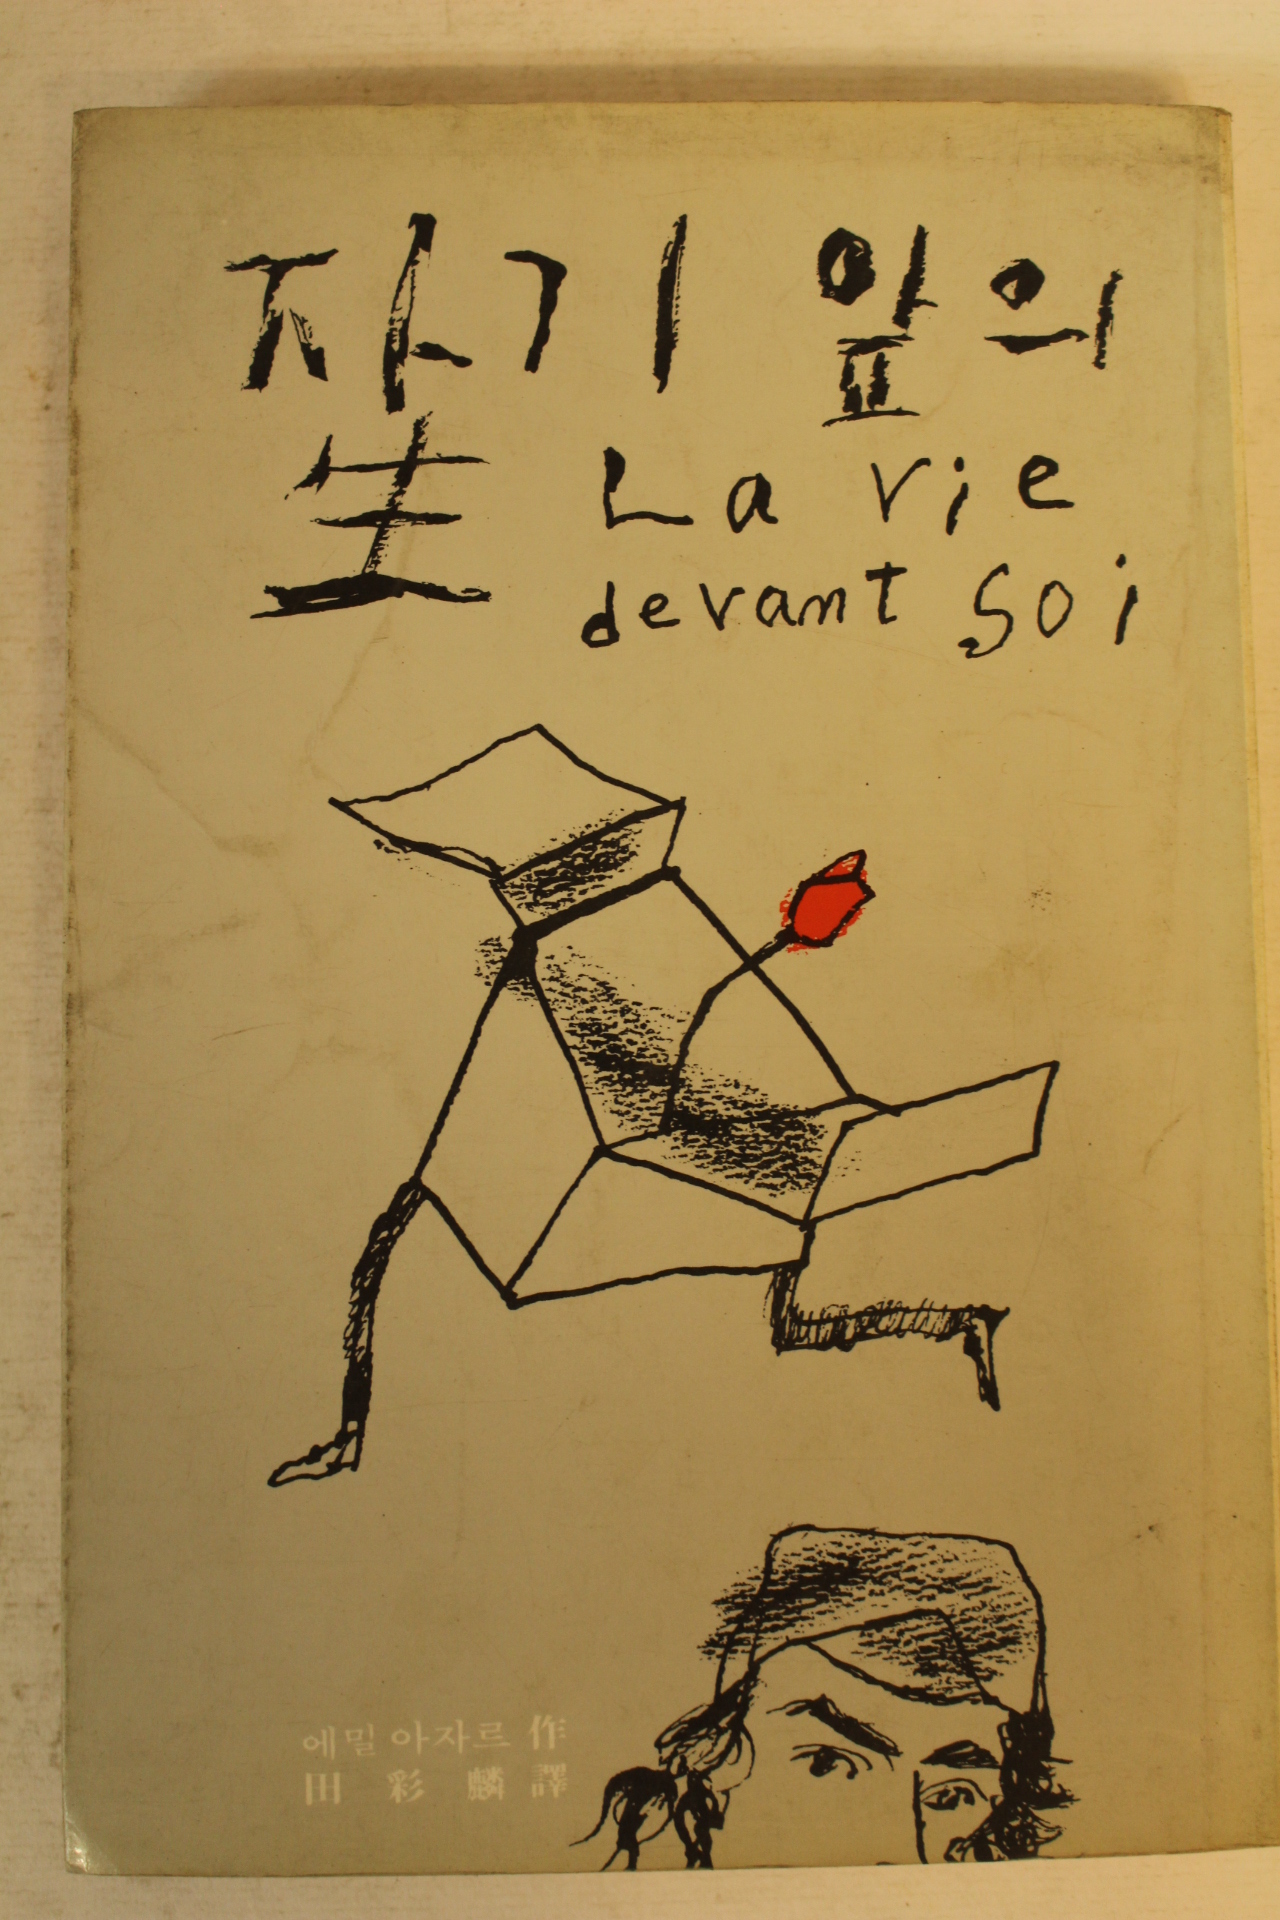 자기 앞의
生 La vie
devant soi
에밀 아자르 作
田 彩 麟 譯